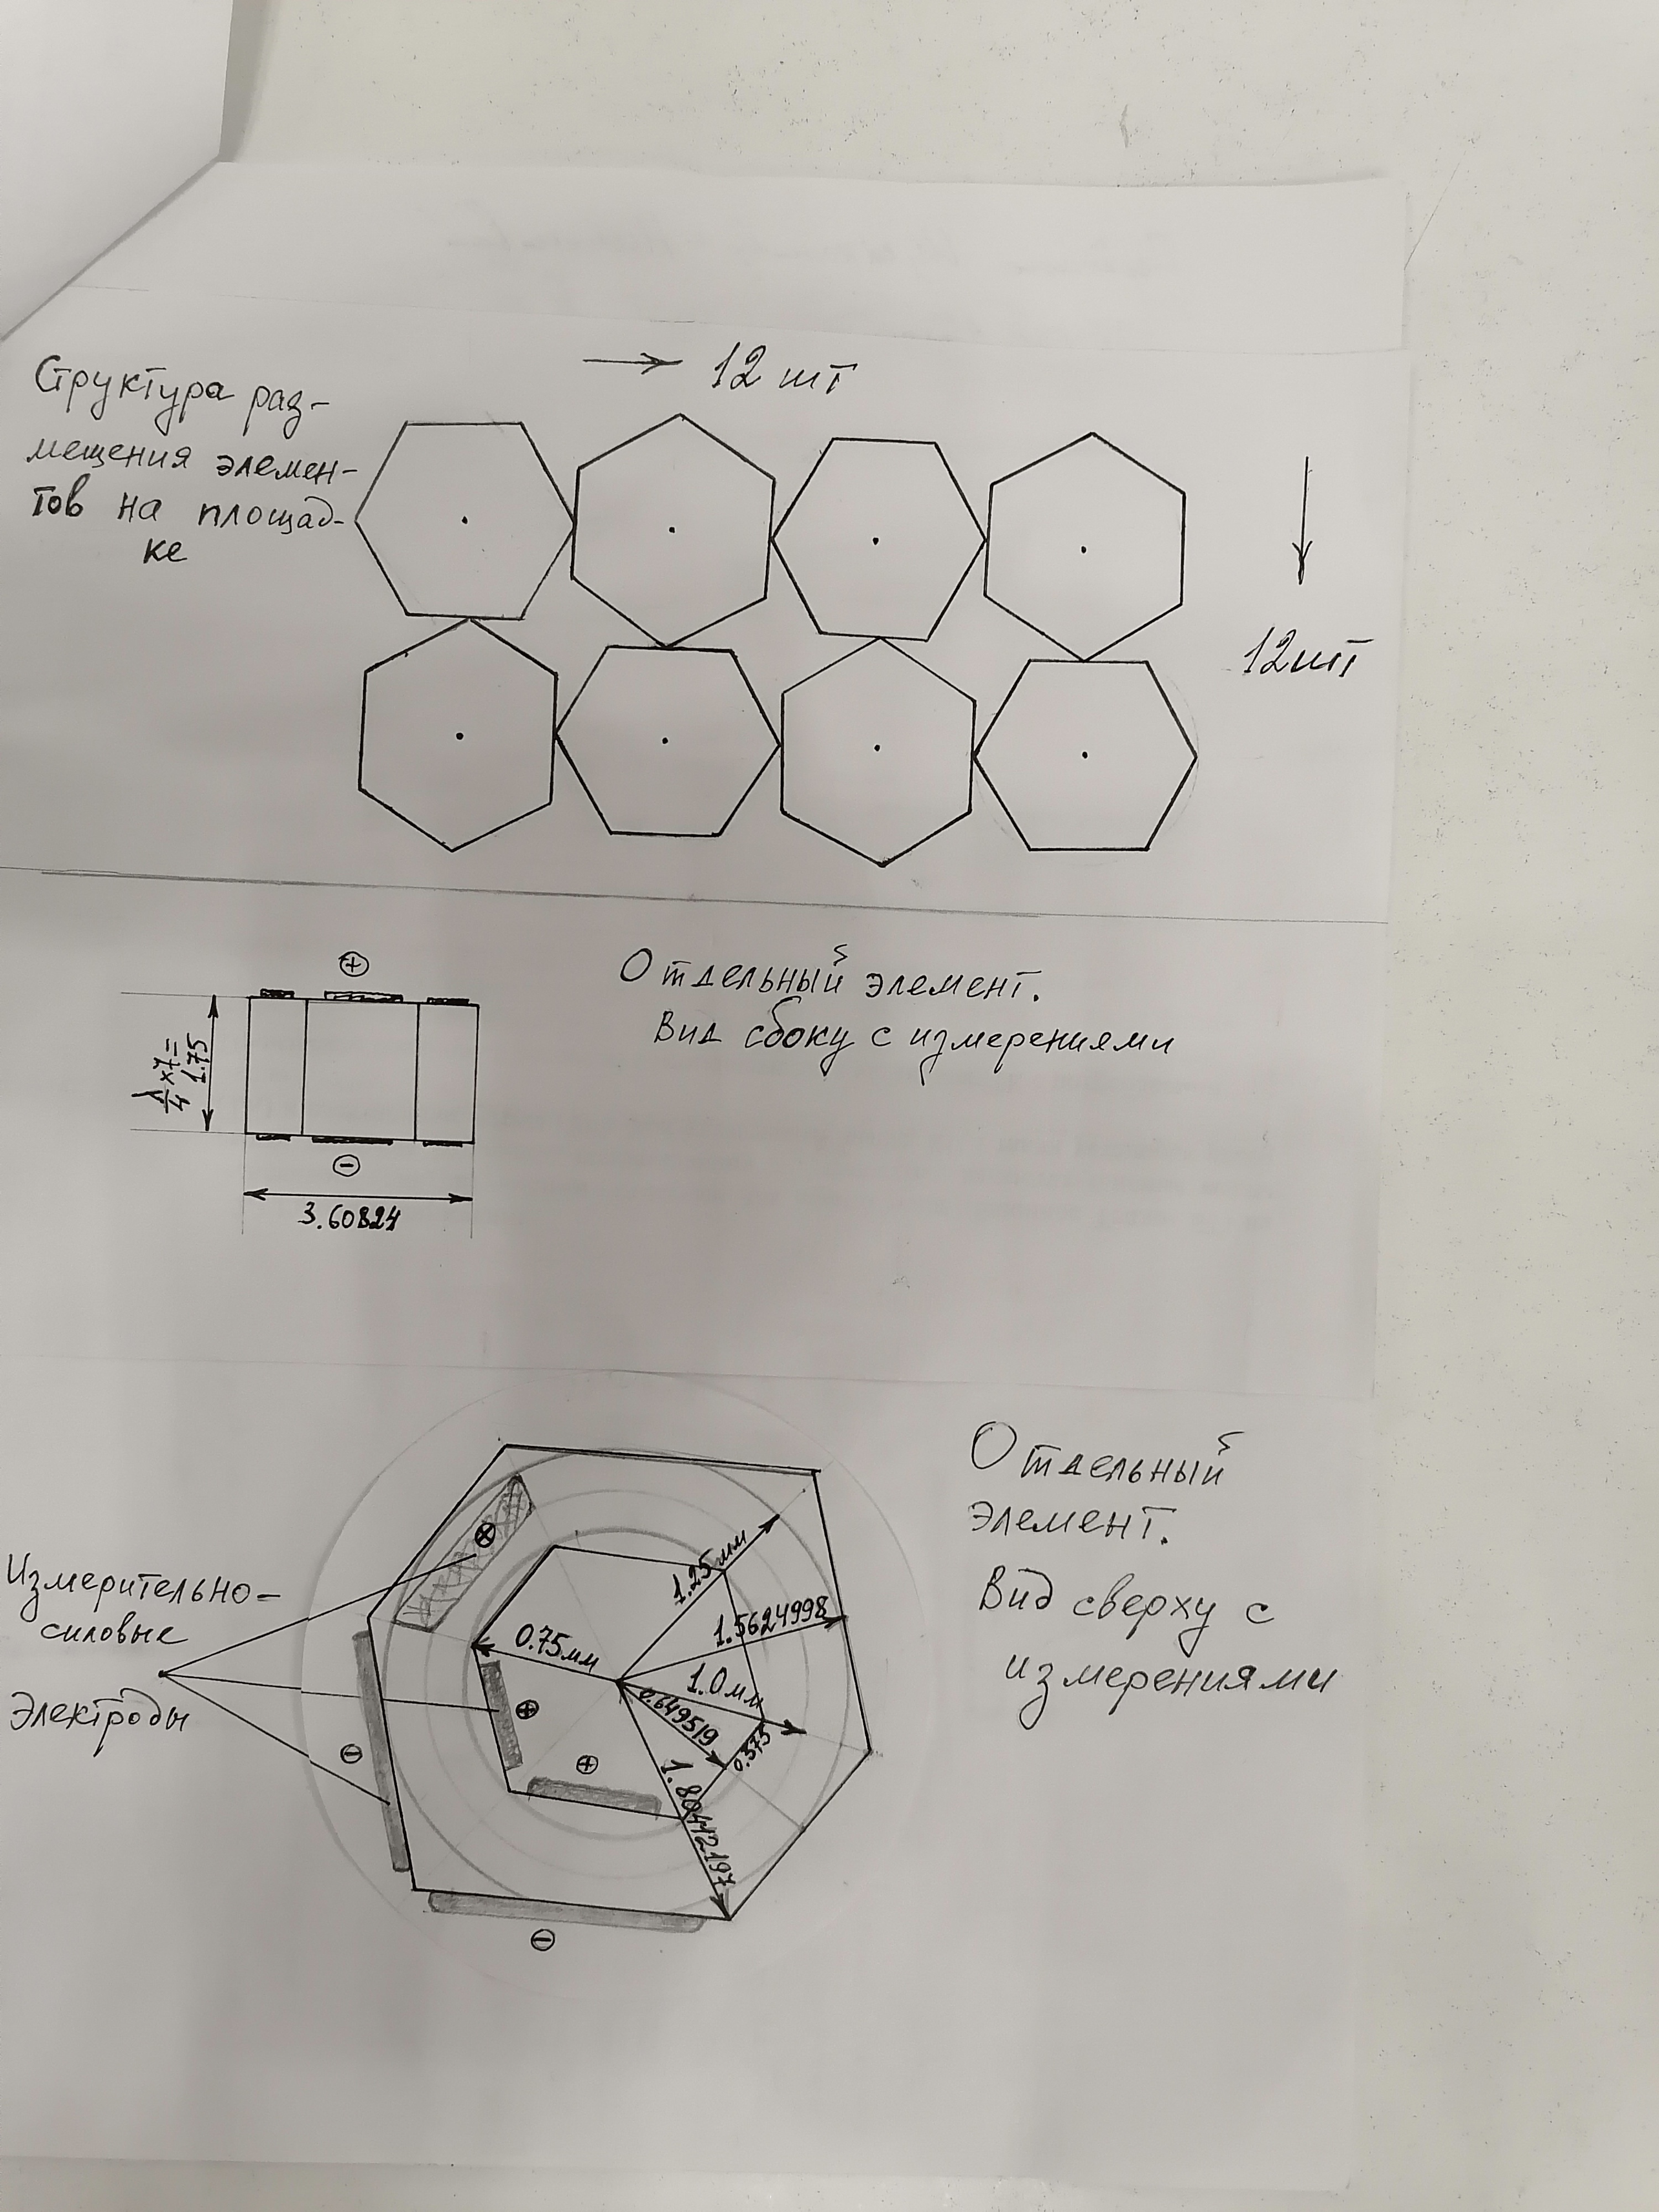 Структура раз-
мещения элемен-
тов на площад-
ке
12 шт
12шт
Отдельный элемент.
Вид сбоку с измерениями
⊕
λ/4 x7=
1.75
⊖
3.60824
Отдельный
элемент.
Вид сверху с
измерениями
Измерительно-
силовые
электроды
⊕
⊕
⊕
⊖
⊖
1.25мм
1.5624998
0.75мм
1.0мм
0.649519
0.375
1.80442197